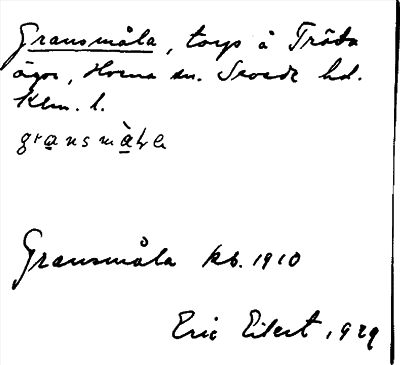 Gransmåla, torp å Tråda
ägor, Horna sn. Sevede hd.
Klm. l.
Gransmåla kb. 1910
Eric Eilert, 1929